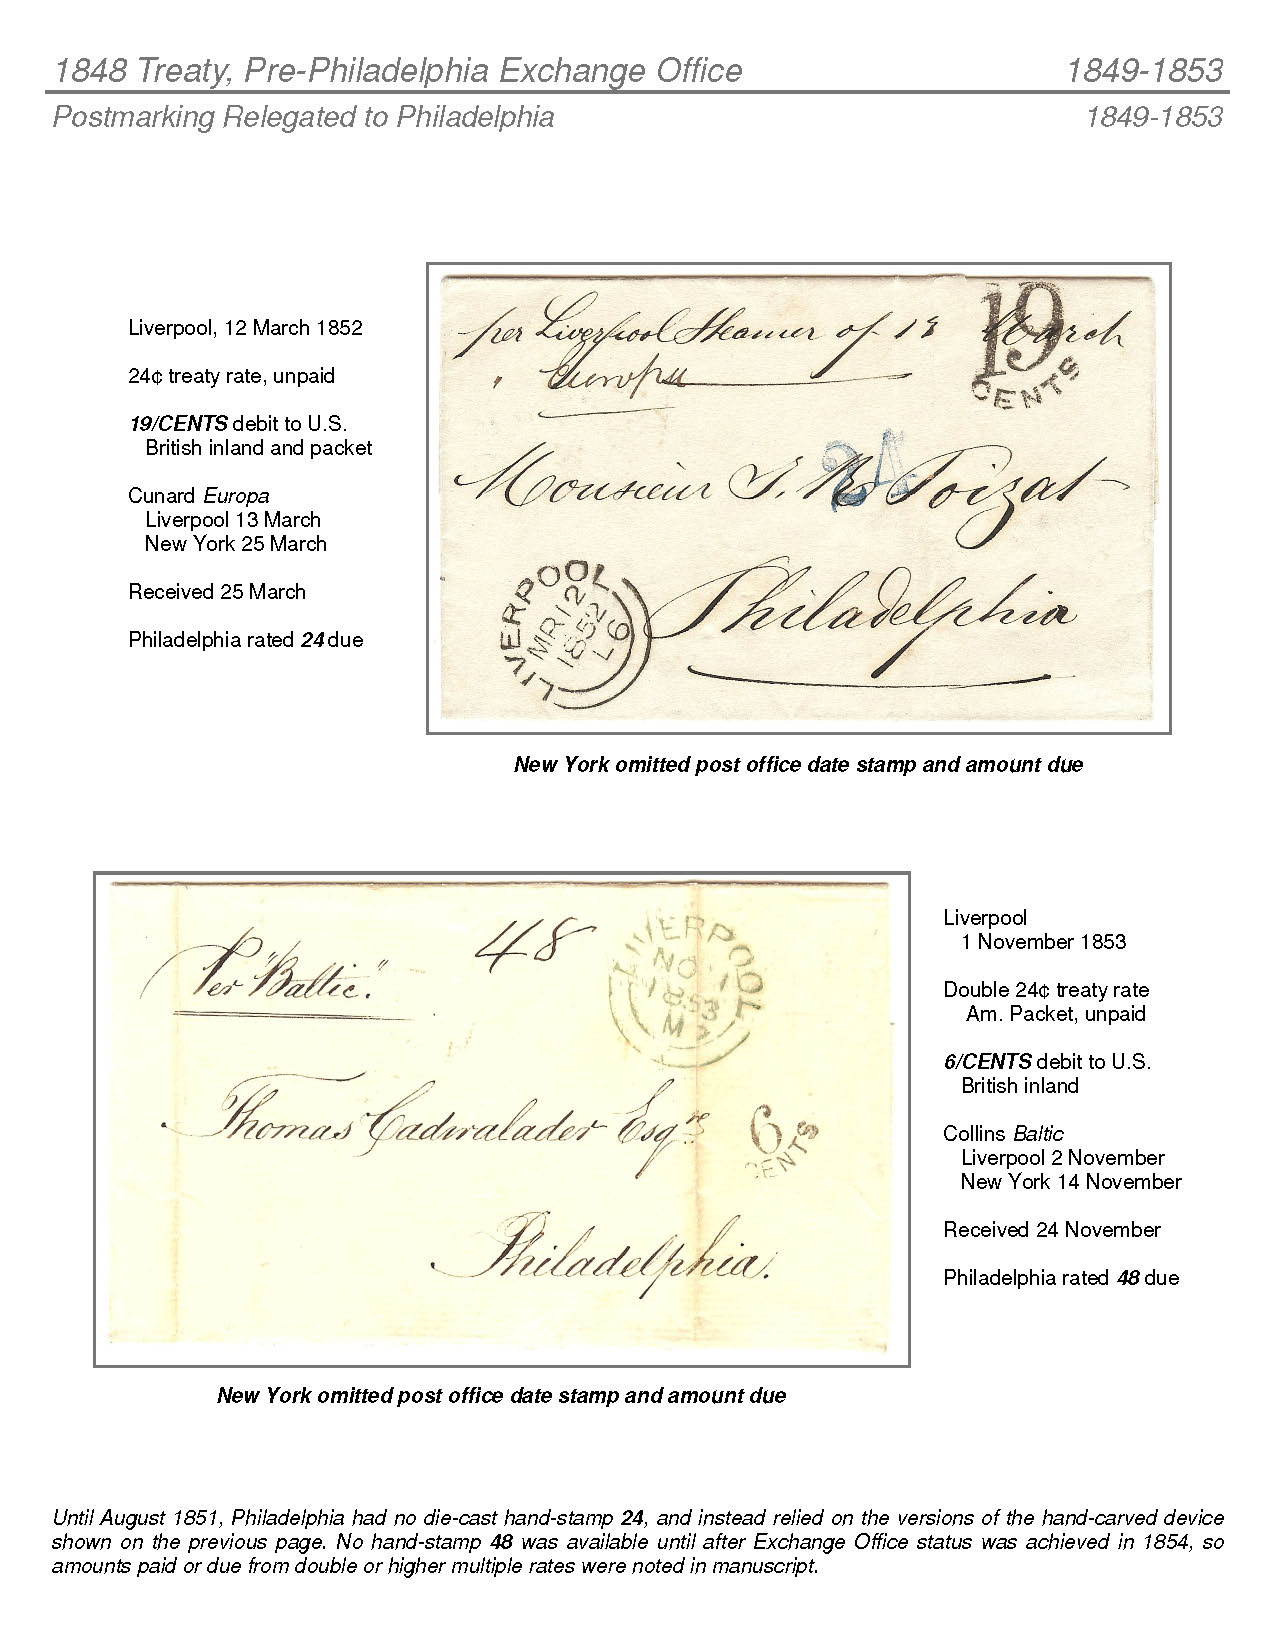 1848 Treaty, Pre-Philadelphia Exchange Office 1849-1853
Postmarking Relegated to Philadelphia 1849-1853
Liverpool, 12 March 1852
24¢ treaty rate, unpaid
19/CENTS debit to U.S.
British inland and packet
Cunard Europa
Liverpool 13 March
New York 25 March
Received 25 March
Philadelphia rated 24 due
per Liverpool Steamer of 13 March
" Europa
19
CENTS
24
Monsieur J. Toizat
Philadelphia
LIVERPOOL
MR 12
1852
L6
New York omitted post office date stamp and amount due
Per "Baltic".
48
LIVERPOOL
NO 1
1853
M
Thomas Cadwalader Esqre
6
CENTS
Philadelphia.
Liverpool
1 November 1853
Double 24¢ treaty rate
Am. Packet, unpaid
6/CENTS debit to U.S.
British inland
Collins Baltic
Liverpool 2 November
New York 14 November
Received 24 November
Philadelphia rated 48 due
New York omitted post office date stamp and amount due
Until August 1851, Philadelphia had no die-cast hand-stamp 24, and instead relied on the versions of the hand-carved device
shown on the previous page. No hand-stamp 48 was available until after Exchange Office status was achieved in 1854, so
amounts paid or due from double or higher multiple rates were noted in manuscript.